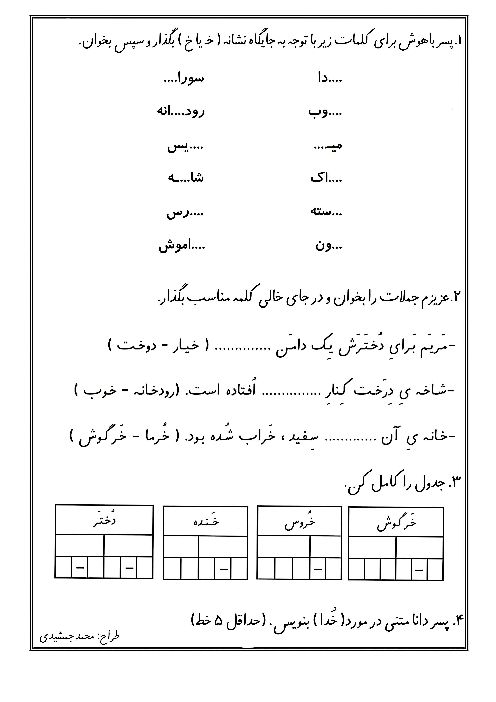 ۱.پسر باهوش برای کلمات زیر با توجه به جایگاه نشانه ( خـ یا خ ) بگذار و سپس بخوان.
....دا سورا....
....وب رود....انه
میـ.... ....یس
....اک شا....ـه
...سته ....رس
...ون ....اموش
۲.عزیزم جملات را بخوان و در جای خالی کلمه مناسب بگذار.
-مَریَم بَرایِ دُختَرَش یِک دامَن .............. ( خیار - دوخت )
-شاخه یِ دِرَخت کِنارِ ............... اُفتاده است. (رودخانه - خوب )
-خانه یِ آن ............. سِفید ، خَراب شُده بود. ( خُرما - خَرگوش )
۳. جدول را کامل کن.
خَرگوش خُروس خَنده دُختَر
– – – – –
۴. پسر دانا متنی در مورد( خُدا ) بنویس. (حداقل ۵ خط)
طراح: محمد جمشیدی